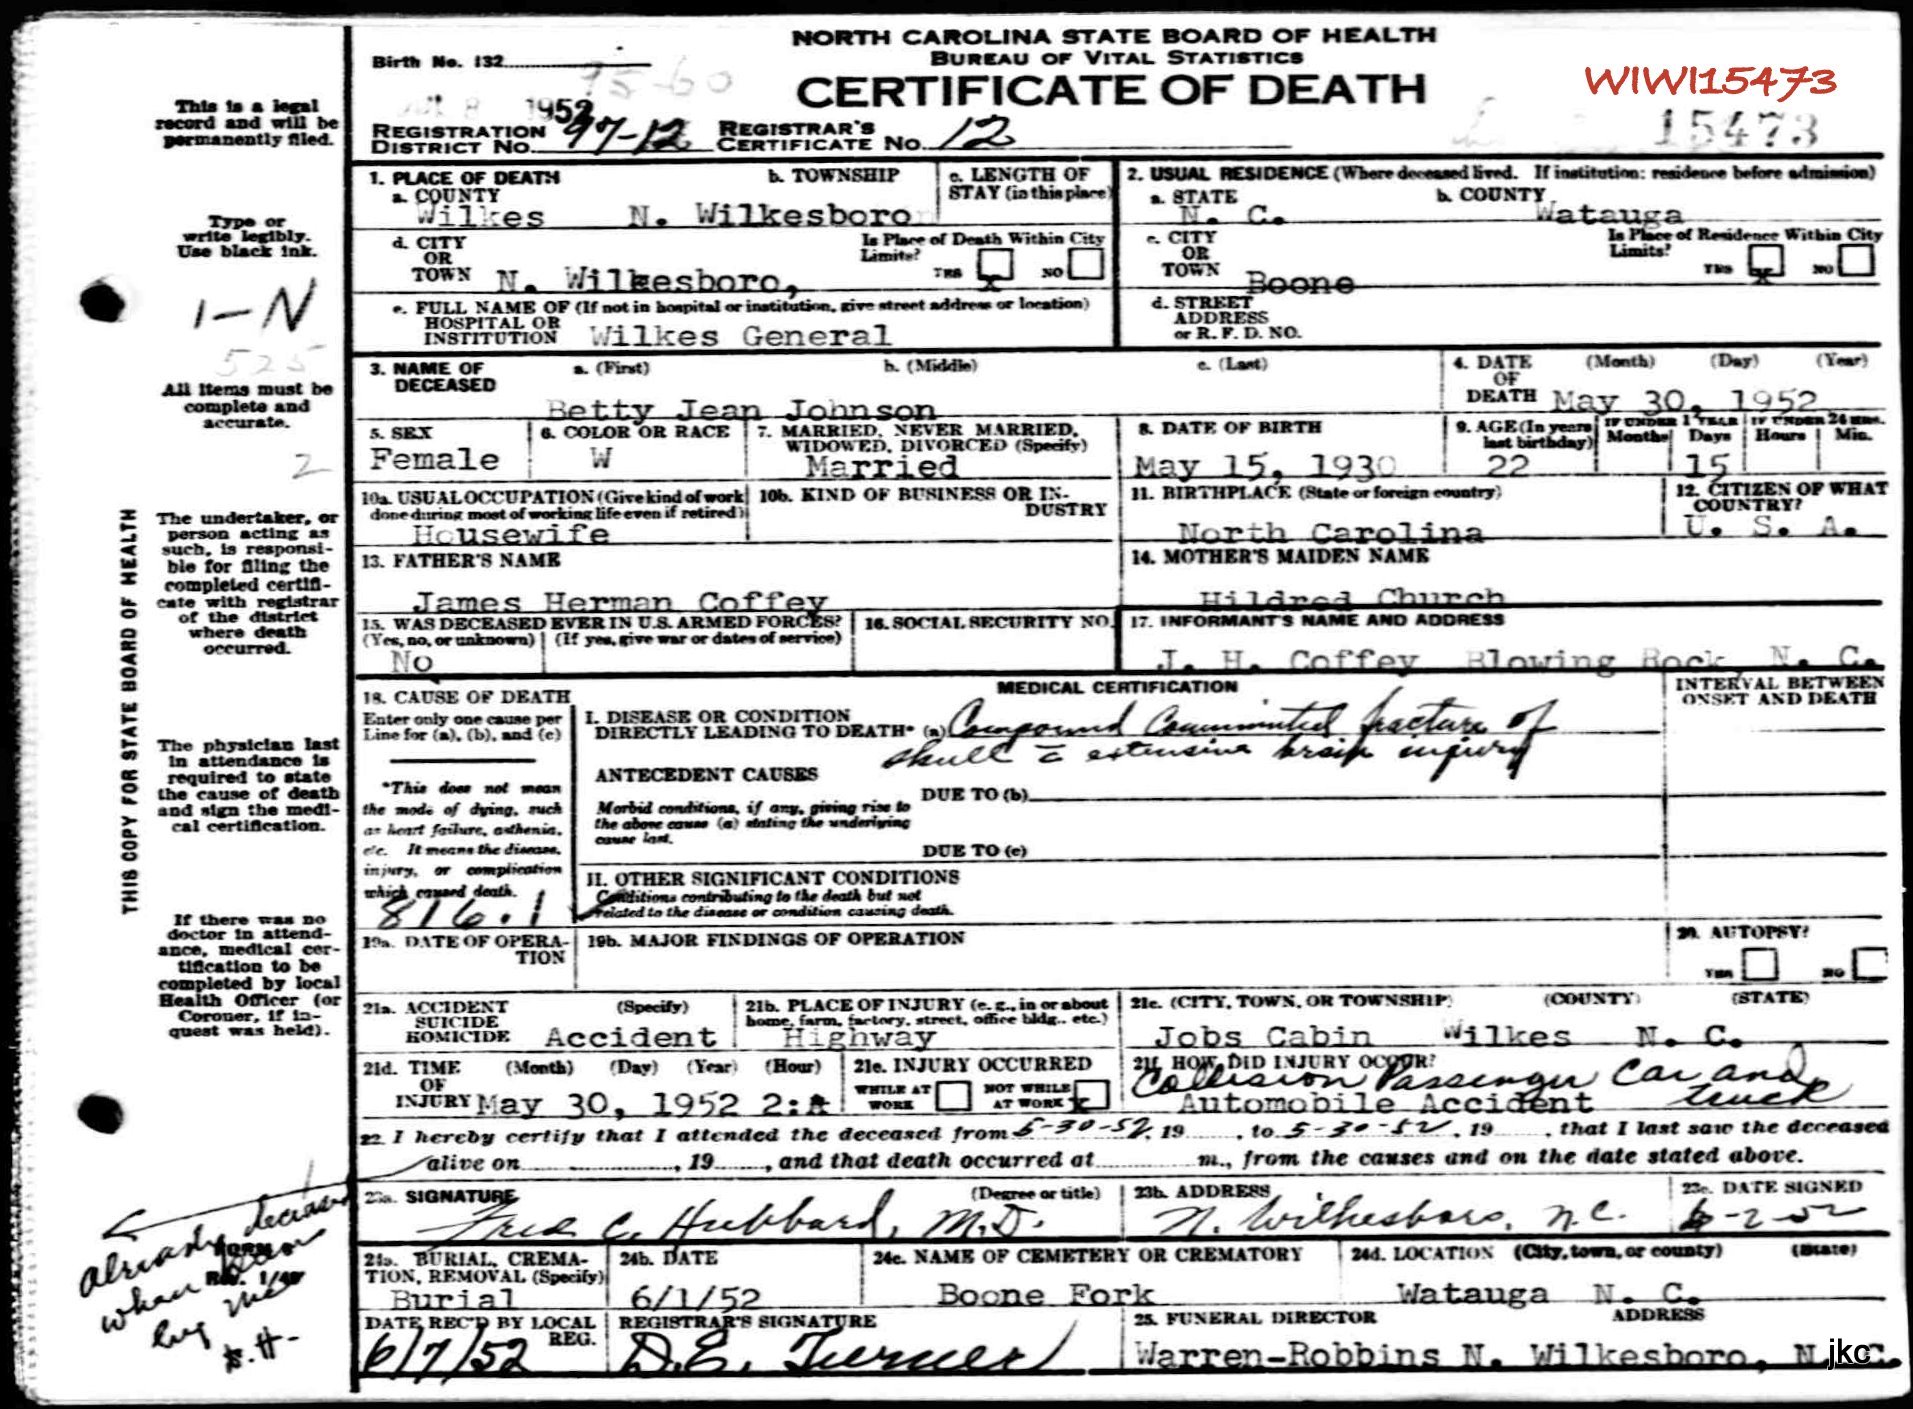 NORTH CAROLINA STATE BOARD OF HEALTH
BUREAU OF VITAL STATISTICS
CERTIFICATE OF DEATH
Birth No. 132
75-60
WIWI15473
15473
8 1952
REGISTRATION DISTRICT NO. 97-12 REGISTRAR'S CERTIFICATE NO. 12
This is a legal
record and will be
permanently filed.
Type or
write legibly.
Use black ink.
1-N
525
All items must be
complete and
accurate.
2
The undertaker, or
person acting as
such, is responsi-
ble for filing the
completed certifi-
cate with registrar
of the district
where death
occurred.
The physician last
in attendance is
required to state
the cause of death
and sign the medi-
cal certification.
If there was no
doctor in attend-
ance, medical cer-
tification to be
completed by local
Health Officer (or
Coroner, if in-
quest was held).
THIS COPY FOR STATE BOARD OF HEALTH
already deceased
when seen
by me
FORM 8
Rev. 1/49
F.H-
1. PLACE OF DEATH
a. COUNTY Wilkes
b. TOWNSHIP N. Wilkesboro
c. LENGTH OF STAY (in this place)
d. CITY OR TOWN N. Wilkesboro,
Is Place of Death Within City Limits? YES x NO
e. FULL NAME OF (If not in hospital or institution, give street address or location)
HOSPITAL OR INSTITUTION Wilkes General
2. USUAL RESIDENCE (Where deceased lived. If institution: residence before admission)
a. STATE N. C.
b. COUNTY Watauga
c. CITY OR TOWN Boone
Is Place of Residence Within City Limits? YES x NO
d. STREET ADDRESS or R. F. D. NO.
3. NAME OF DECEASED a. (First) b. (Middle) c. (Last)
Betty Jean Johnson
4. DATE OF DEATH (Month) (Day) (Year)
May 30, 1952
5. SEX
Female
6. COLOR OR RACE
W
7. MARRIED, NEVER MARRIED, WIDOWED, DIVORCED (Specify)
Married
8. DATE OF BIRTH
May 15, 1930
9. AGE (In years last birthday)
22
IF UNDER 1 YEAR Months Days
15
IF UNDER 24 HRS. Hours Min.
10a. USUAL OCCUPATION (Give kind of work done during most of working life even if retired)
Housewife
10b. KIND OF BUSINESS OR IN-
DUSTRY
11. BIRTHPLACE (State or foreign country)
North Carolina
12. CITIZEN OF WHAT COUNTRY?
U. S. A.
13. FATHER'S NAME
James Herman Coffey
14. MOTHER'S MAIDEN NAME
Hildred Church
15. WAS DECEASED EVER IN U.S. ARMED FORCES?
(Yes, no, or unknown) (If yes, give war or dates of service)
No
16. SOCIAL SECURITY NO.
17. INFORMANT'S NAME AND ADDRESS
J. H. Coffey Blowing Rock, N. C.
18. CAUSE OF DEATH
Enter only one cause per
Line for (a), (b), and (c)
*This does not mean
the mode of dying, such
as heart failure, asthenia,
etc. It means the disease,
injury, or complication
which caused death.
816.1
MEDICAL CERTIFICATION
INTERVAL BETWEEN ONSET AND DEATH
I. DISEASE OR CONDITION
DIRECTLY LEADING TO DEATH* (a) Compound Comminuted fracture of
skull c̄ extensive brain injury
ANTECEDENT CAUSES
Morbid conditions, if any, giving rise to
the above cause (a) stating the underlying
cause last.
DUE TO (b)
DUE TO (c)
II. OTHER SIGNIFICANT CONDITIONS
Conditions contributing to the death but not
related to the disease or condition causing death.
19a. DATE OF OPERA-
TION
19b. MAJOR FINDINGS OF OPERATION
20. AUTOPSY?
YES NO
21a. ACCIDENT SUICIDE HOMICIDE (Specify)
Accident
21b. PLACE OF INJURY (e. g., in or about home, farm, factory, street, office bldg., etc.)
Highway
21c. (CITY, TOWN, OR TOWNSHIP) (COUNTY) (STATE)
Jobs Cabin Wilkes N. C.
21d. TIME OF INJURY (Month) (Day) (Year) (Hour)
May 30, 1952 2:A
21e. INJURY OCCURRED
WHILE AT WORK NOT WHILE AT WORK x
21f. HOW DID INJURY OCCUR?
Collision Passenger Car and truck
Automobile Accident
22. I hereby certify that I attended the deceased from 5-30-52, 19, to 5-30-52, 19, that I last saw the deceased
alive on, 19, and that death occurred at m., from the causes and on the date stated above.
23a. SIGNATURE (Degree or title)
Fred C. Hubbard, M.D.
23b. ADDRESS
N. Wilkesboro, N.C.
23c. DATE SIGNED
6-2-52
24a. BURIAL, CREMA-
TION, REMOVAL (Specify)
Burial
24b. DATE
6/1/52
24c. NAME OF CEMETERY OR CREMATORY
Boone Fork
24d. LOCATION (City, town, or county) (State)
Watauga N. C.
DATE REC'D BY LOCAL REG.
6/7/52
REGISTRAR'S SIGNATURE
D.E. Turner
25. FUNERAL DIRECTOR ADDRESS
Warren-Robbins N. Wilkesboro, N.C.
jkc